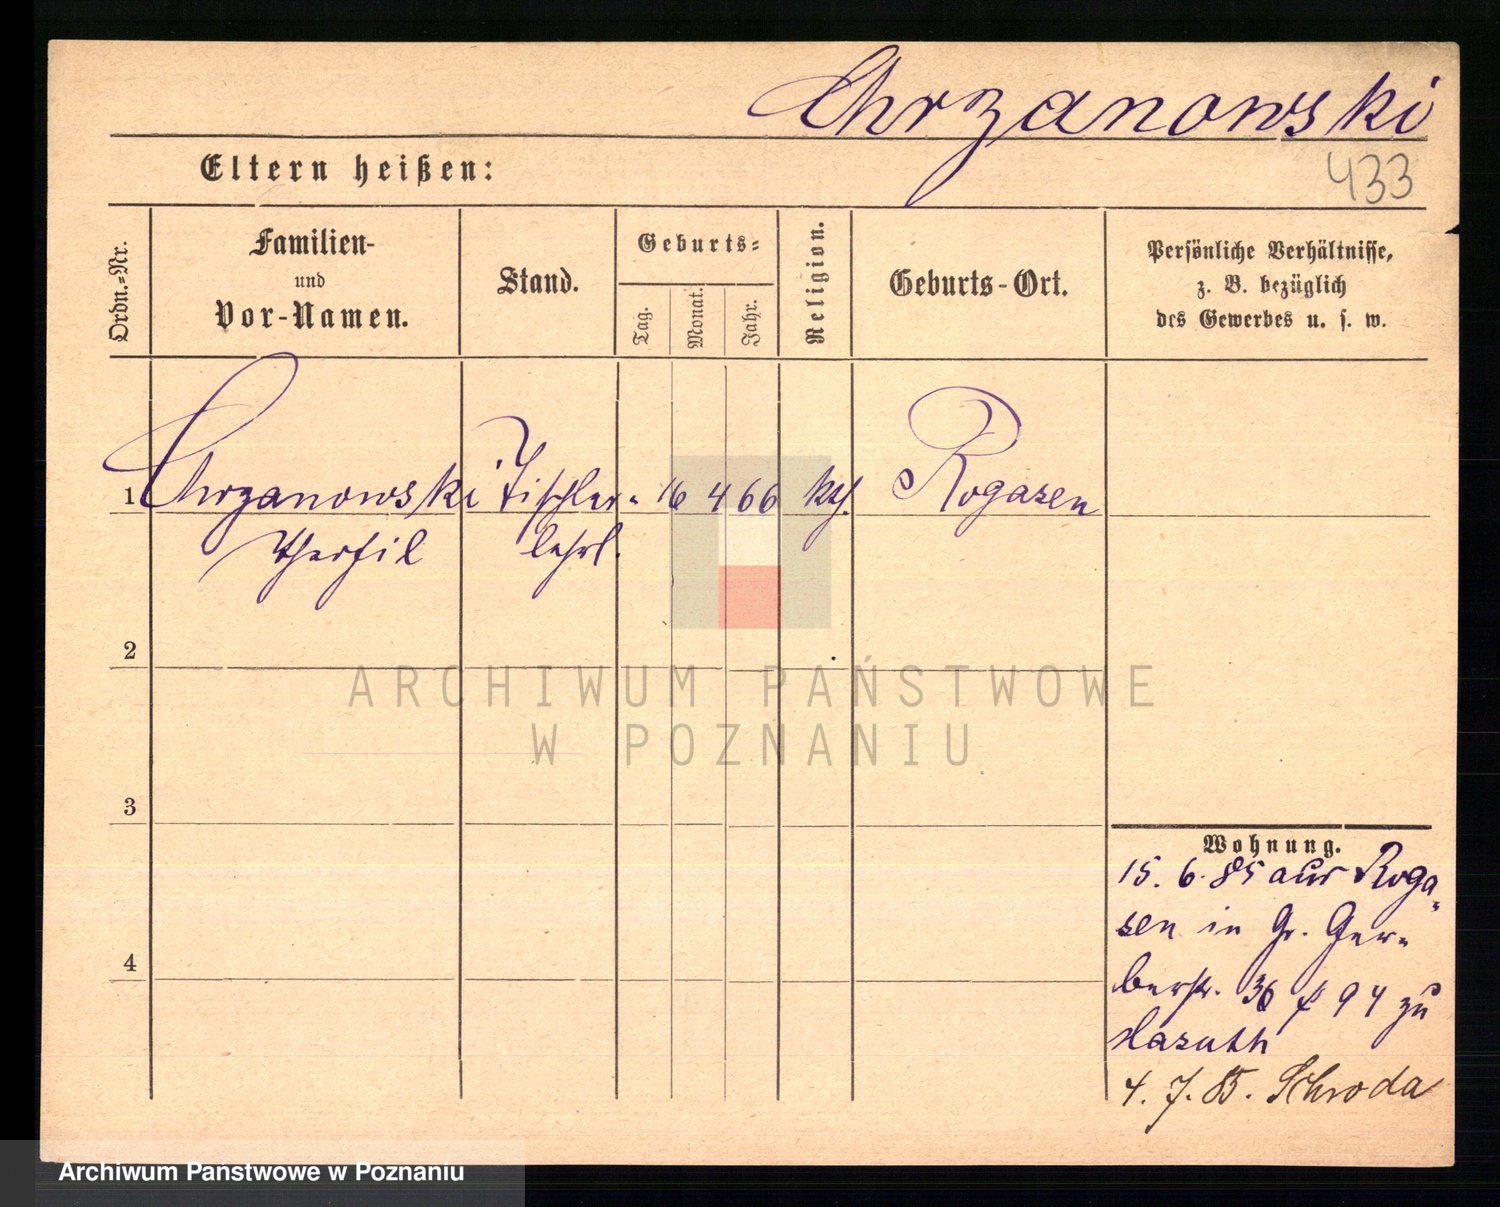 Chrzanowski
Eltern heißen:
433
Ordn.-Nr.
Familien-
und
Vor-Namen.
Stand.
Geburts-
Tag.
Monat.
Jahr.
Religion.
Geburts-Ort.
Persönliche Verhältnisse,
z. B. bezüglich
des Gewerbes u. s. w.
1 Chrzanowski Tischler- 16 4 66 kth. Rogasen
lehrl.
2
ARCHIWUM PAŃSTWOWE
W POZNANIU
3
4
Wohnung.
15. 6. 85 aus Roga-
sen in Gr. Ger-
berstr. 36 # 94 zu
4. 7. 85. Schroda
Archiwum Państwowe w Poznaniu